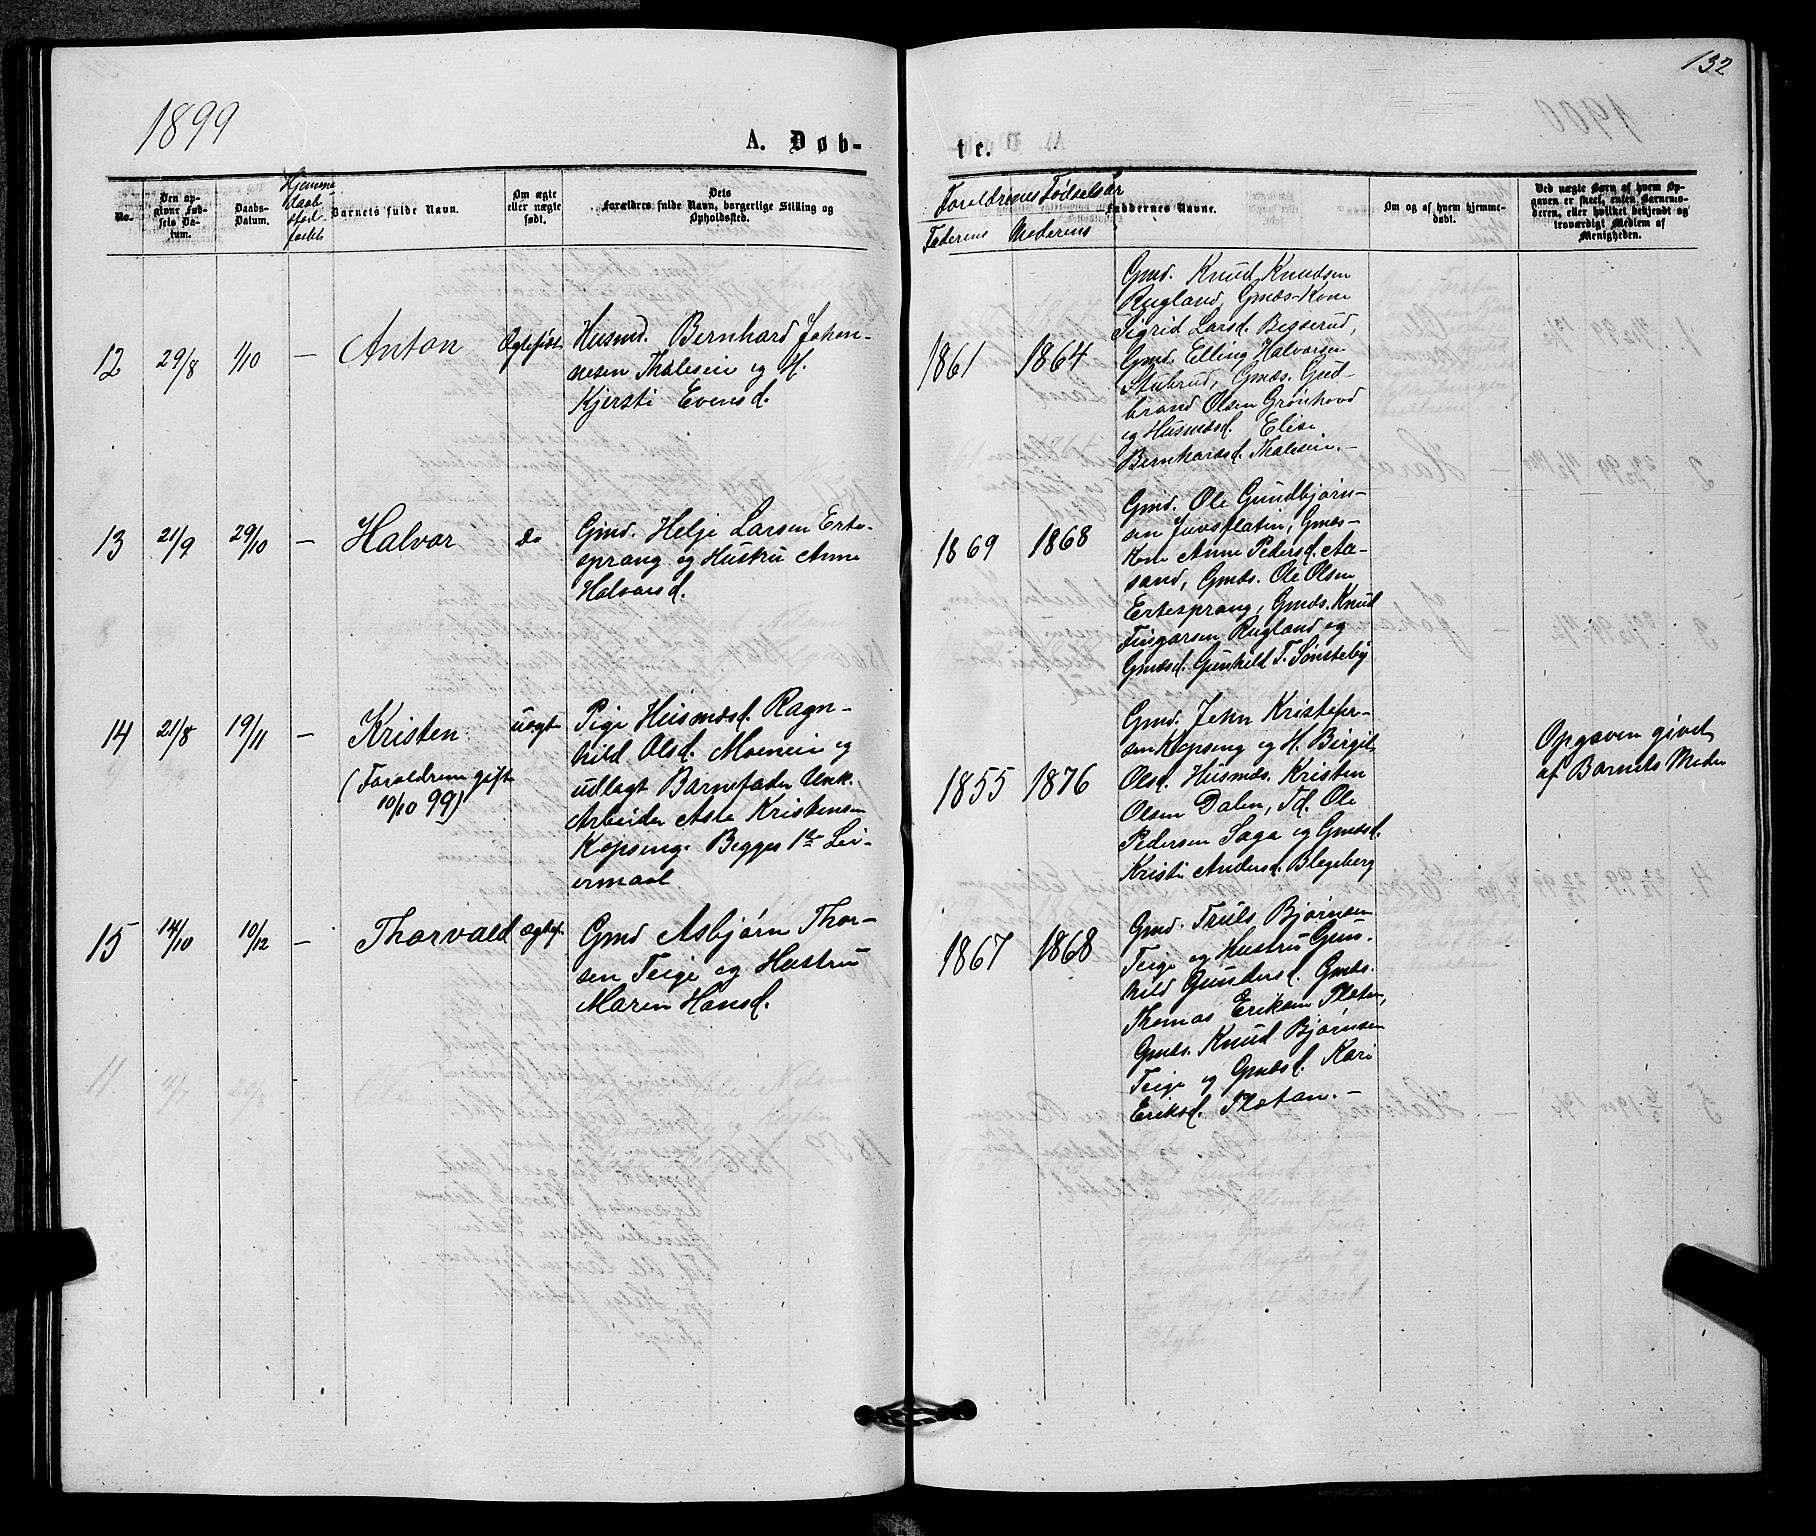 132
1899
A. Døb-
te.
No.
Den op-
givne Fød-
sels Da-
tum.
Daabs-
Datum.
Hjemme
daab
stad-
festet
Barnets fulde Navn.
Om ægte
eller uægte
født.
Dets
Forældres fulde Navn, borgerlige Stilling og
Opholdssted.
Forældrenes Fødselsår
Faderens Moderens
Faddernes Navne.
Om og af hvem hjemme-
døbt.
Ved uægte Børn af hvem Op-
gaven er skeet, enten Barnemo-
deren, eller hvilket bekjendt og
troværdigt Medlem af
Menigheden.
12 29/8 1/10 — Anton Ægtefødt
Husmd. Bernhard Johan-
nesen Thaleseie og H.
Kjersti Evensd.
1861 1864
Gmd. Knud Knudsen
Rugland, Gmds-Kone
Sigrid Larsd. Besserud,
Gmd. Elling Halvorsen
Stubrud, Gmds. Gud-
brand Olsen Grønhovd
og Husmdsd. Elise
Bernhardsd. Thaleseie.—
13 21/9 29/10 — Halvor do
Gmd. Helje Larsen Erte-
sprang og Hustru Anne
Halvorsd.
1869 1868
Gmd. Ole Gundbjørn-
sen Juvsplatin, Gmds-
Kone Anne Pedersd. Aa-
sand, Gmds. Ole Olsen
Ertesprang, Gmds. Knud
Fingarsen Rugland og
Gmdsd. Gunhild T. Sønsteby
14 21/8 19/11 — Kristen uægt
(Forældrene gift
10/10 99)
Pige Husmdsd. Ragn-
hild Olsd. Moeneie og
udlagt Barnefader Unk.
Arbeider Asle Kristensen
Kopseng. Begges 1ste Lei-
ermaal
1855 1876
Gmd. John Kristofer-
sen Kopseng og H. Birgit
Olsd. Husmds. Kristen
Olsen Dalen, Td. Ole
Pedersen Saga og Gmdsd.
Kristi Andersd. Blegeberg
Opgaven givet
af Barnets Moder
15 14/10 10/12 — Thorvald ægtef.
Gmd Asbjørn Thor-
sen Teige og Hustru
Maren Hansd.
1867 1868
Gmd. Truls Bjørnsen
Teige og Hustru Gun-
hild Gundersd. Gmds.
Thomas Eriksen Pladen,
Gmds. Knud Bjørnsen
Teige og Gmdsd. Kari
Eriksd. Pladen.—